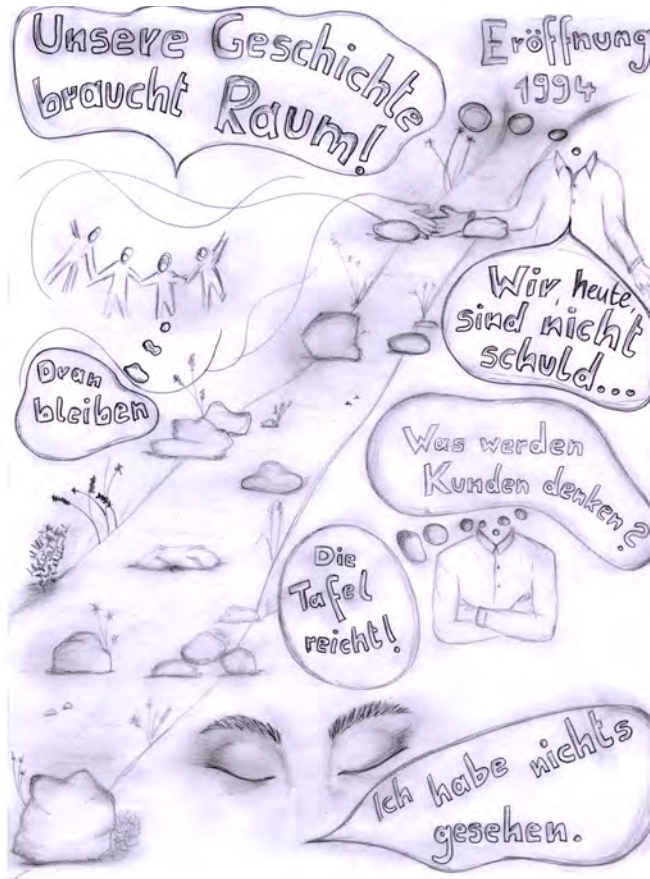 Unsere Geschichte
braucht Raum!
Eröffnung
1994
Wir, heute,
sind nicht
schuld...
Dran
bleiben
Was werden
Kunden denken?
Die
Tafel
reicht!
Ich habe nichts
gesehen.